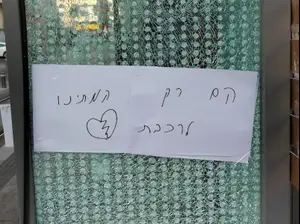 הם רק המתינו
לרכבת